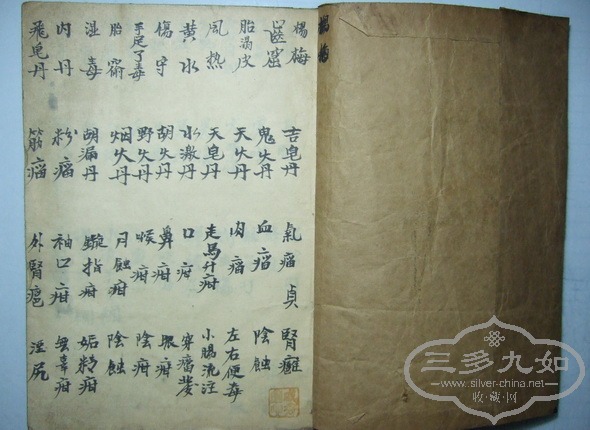 楊梅 吉皂丹 氣瘤 貞 腎癰
鬼火丹 血瘤 陰蝕
胎漏皮 天火丹 肉瘤 左右便毒
風熱 天皂丹 走馬牙疳 小腸流注
黃水 水激丹 口疳 穿瘤發
傷守 胡火丹 鼻疳 眼疳
手足丫毒 野火丹 喉疳 陰疳
胎𤻤 烟火丹 月蝕疳 陰蝕
湿毒 胡漏丹 蟣指疳 妬精疳
内丹 粉瘤 袖口疳 無辜疳
飛皂丹 筋瘤 外腎癰 溼尻
楊梅
三多九如
www.silver-china.net
收·藏·网